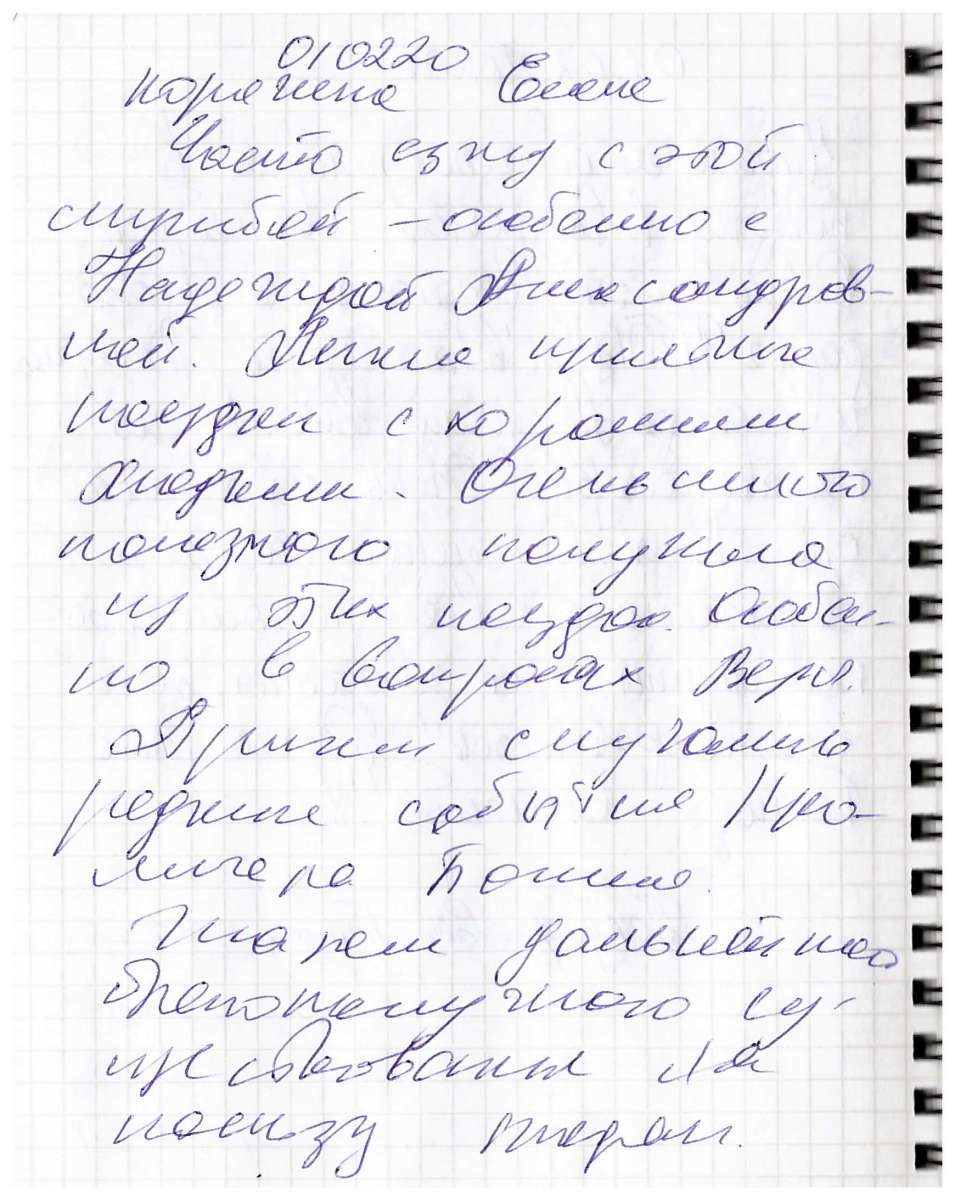 010220
Корячкина Елена
Часто езжу с этой
службой – особенно с
Надеждой Александров-
ной. Легкие приятные
поездки с хорошими
людьми. Очень много
полезного получила
из этих поездок. Особен-
но в вопросах Веры.
Причем случались
редкие события
Божия.
Желаем дальнейшего
благополучного су-
ществования на
пользу людям.